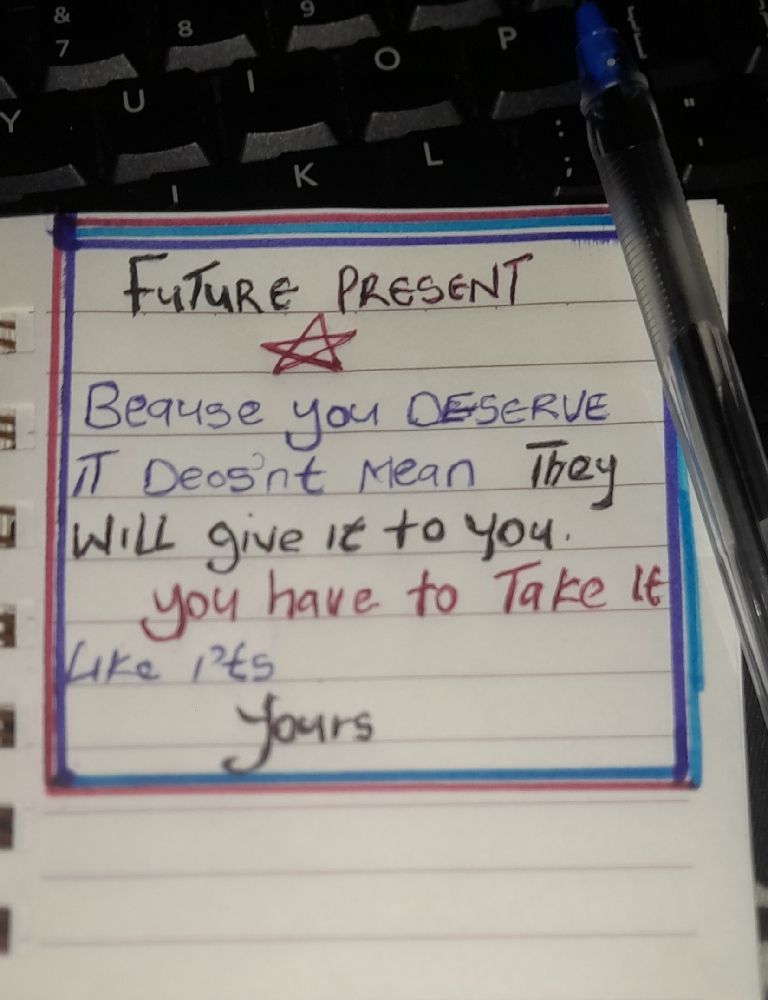 &
7
8
9
Y U I O P {
[
K L :
;
"
'
FUTURE PRESENT
Beause you DESERVE
IT Deos'nt Mean They
WILL give it to you.
you have to Take It
Like i'ts
Yours